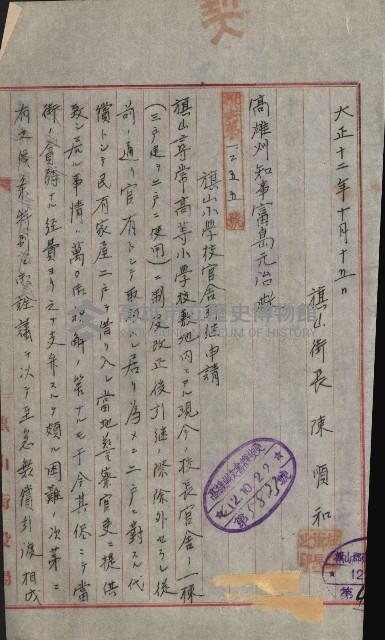 大正十二年十月十五日
旗山街長 陳順和
高雄州知事富島元治殿
旗山小學校官舍引繼申請
旗山尋常高等小學校敷地內ニアル現今ノ校長官舍ノ一棟
(三戶建ヲ二戶ニ使用)ハ制度改正後引繼ノ際除外セラレ從
前ノ通リ官有トシテ取扱ヒ居リ為メニ二戶ニ對スル代
償トシテ民有家屋二戶ヲ借リ入レ當地警察官吏ニ提供
致シ居ル事情ハ萬御承知ノ筈ナルモ于今其儘ニテハ當
街ノ貧弱ナル經費ヨリ之ヲ支弁スルヿ頗ル困難ノ次第ニ
有之候條特別ノ御詮議ヲ以テ至急無償引渡相成
12.10.29
高雄市立歷史博物館
KAOHSIUNG MUSEUM OF HISTORY